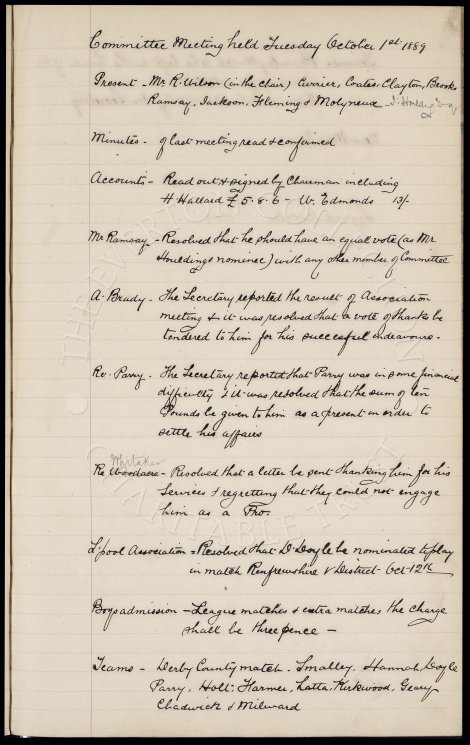 Committee Meeting held Tuesday October 1st 1889
Present - Mr R. Wilson (in the chair) Currier, Coates, Clayton, Brooks
Ramsay, Jackson, Fleming & Molyneux
Minutes - of last meeting read & confirmed
Accounts - Read out & signed by Chairman including
H Hallard £5.8.6 - W. Edmonds 13/-
Mr Ramsay - Resolved that he should have an equal vote (as Mr
Houldings nominee) with any other member of Committee
A. Brady - The Secretary reported the result of Association
meeting & it was resolved that a vote of thanks be
tendered to him for his succesful endeavours.
Re-Parry - The Secretary reported that Parry was in some financial
difficulty & it was resolved that the sum of ten
Pounds be given to him as a present in order to
settle his affairs
Whitaker
Re Woodacre - Resolved that a letter be sent thanking him for his
Services & regretting that they could not engage
him as a Pro.
L'pool Association - Resolved that D. Doyle be nominated to play
in match Renfrewshire v District Oct 12th
Boys admission - League matches & extra matches the charge
shall be threepence -
Teams - Derby County match. Smalley, Hannah, Doyle
Parry, Holt, Farmer, Latta, Kirkwood, Geary
Chadwick & Milward
THE EVERTON COLLECTION
CHARITABLE TRUST